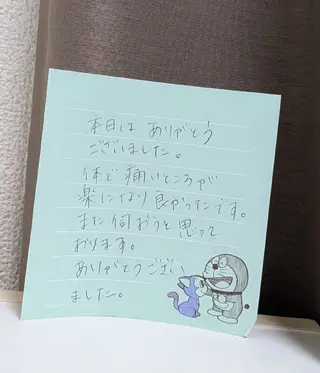 本日は ありがとう
ございました。
体で 痛いところが
楽になり 良かったです。
また 伺おうと思って
おります。
ありがとうござい
ました。